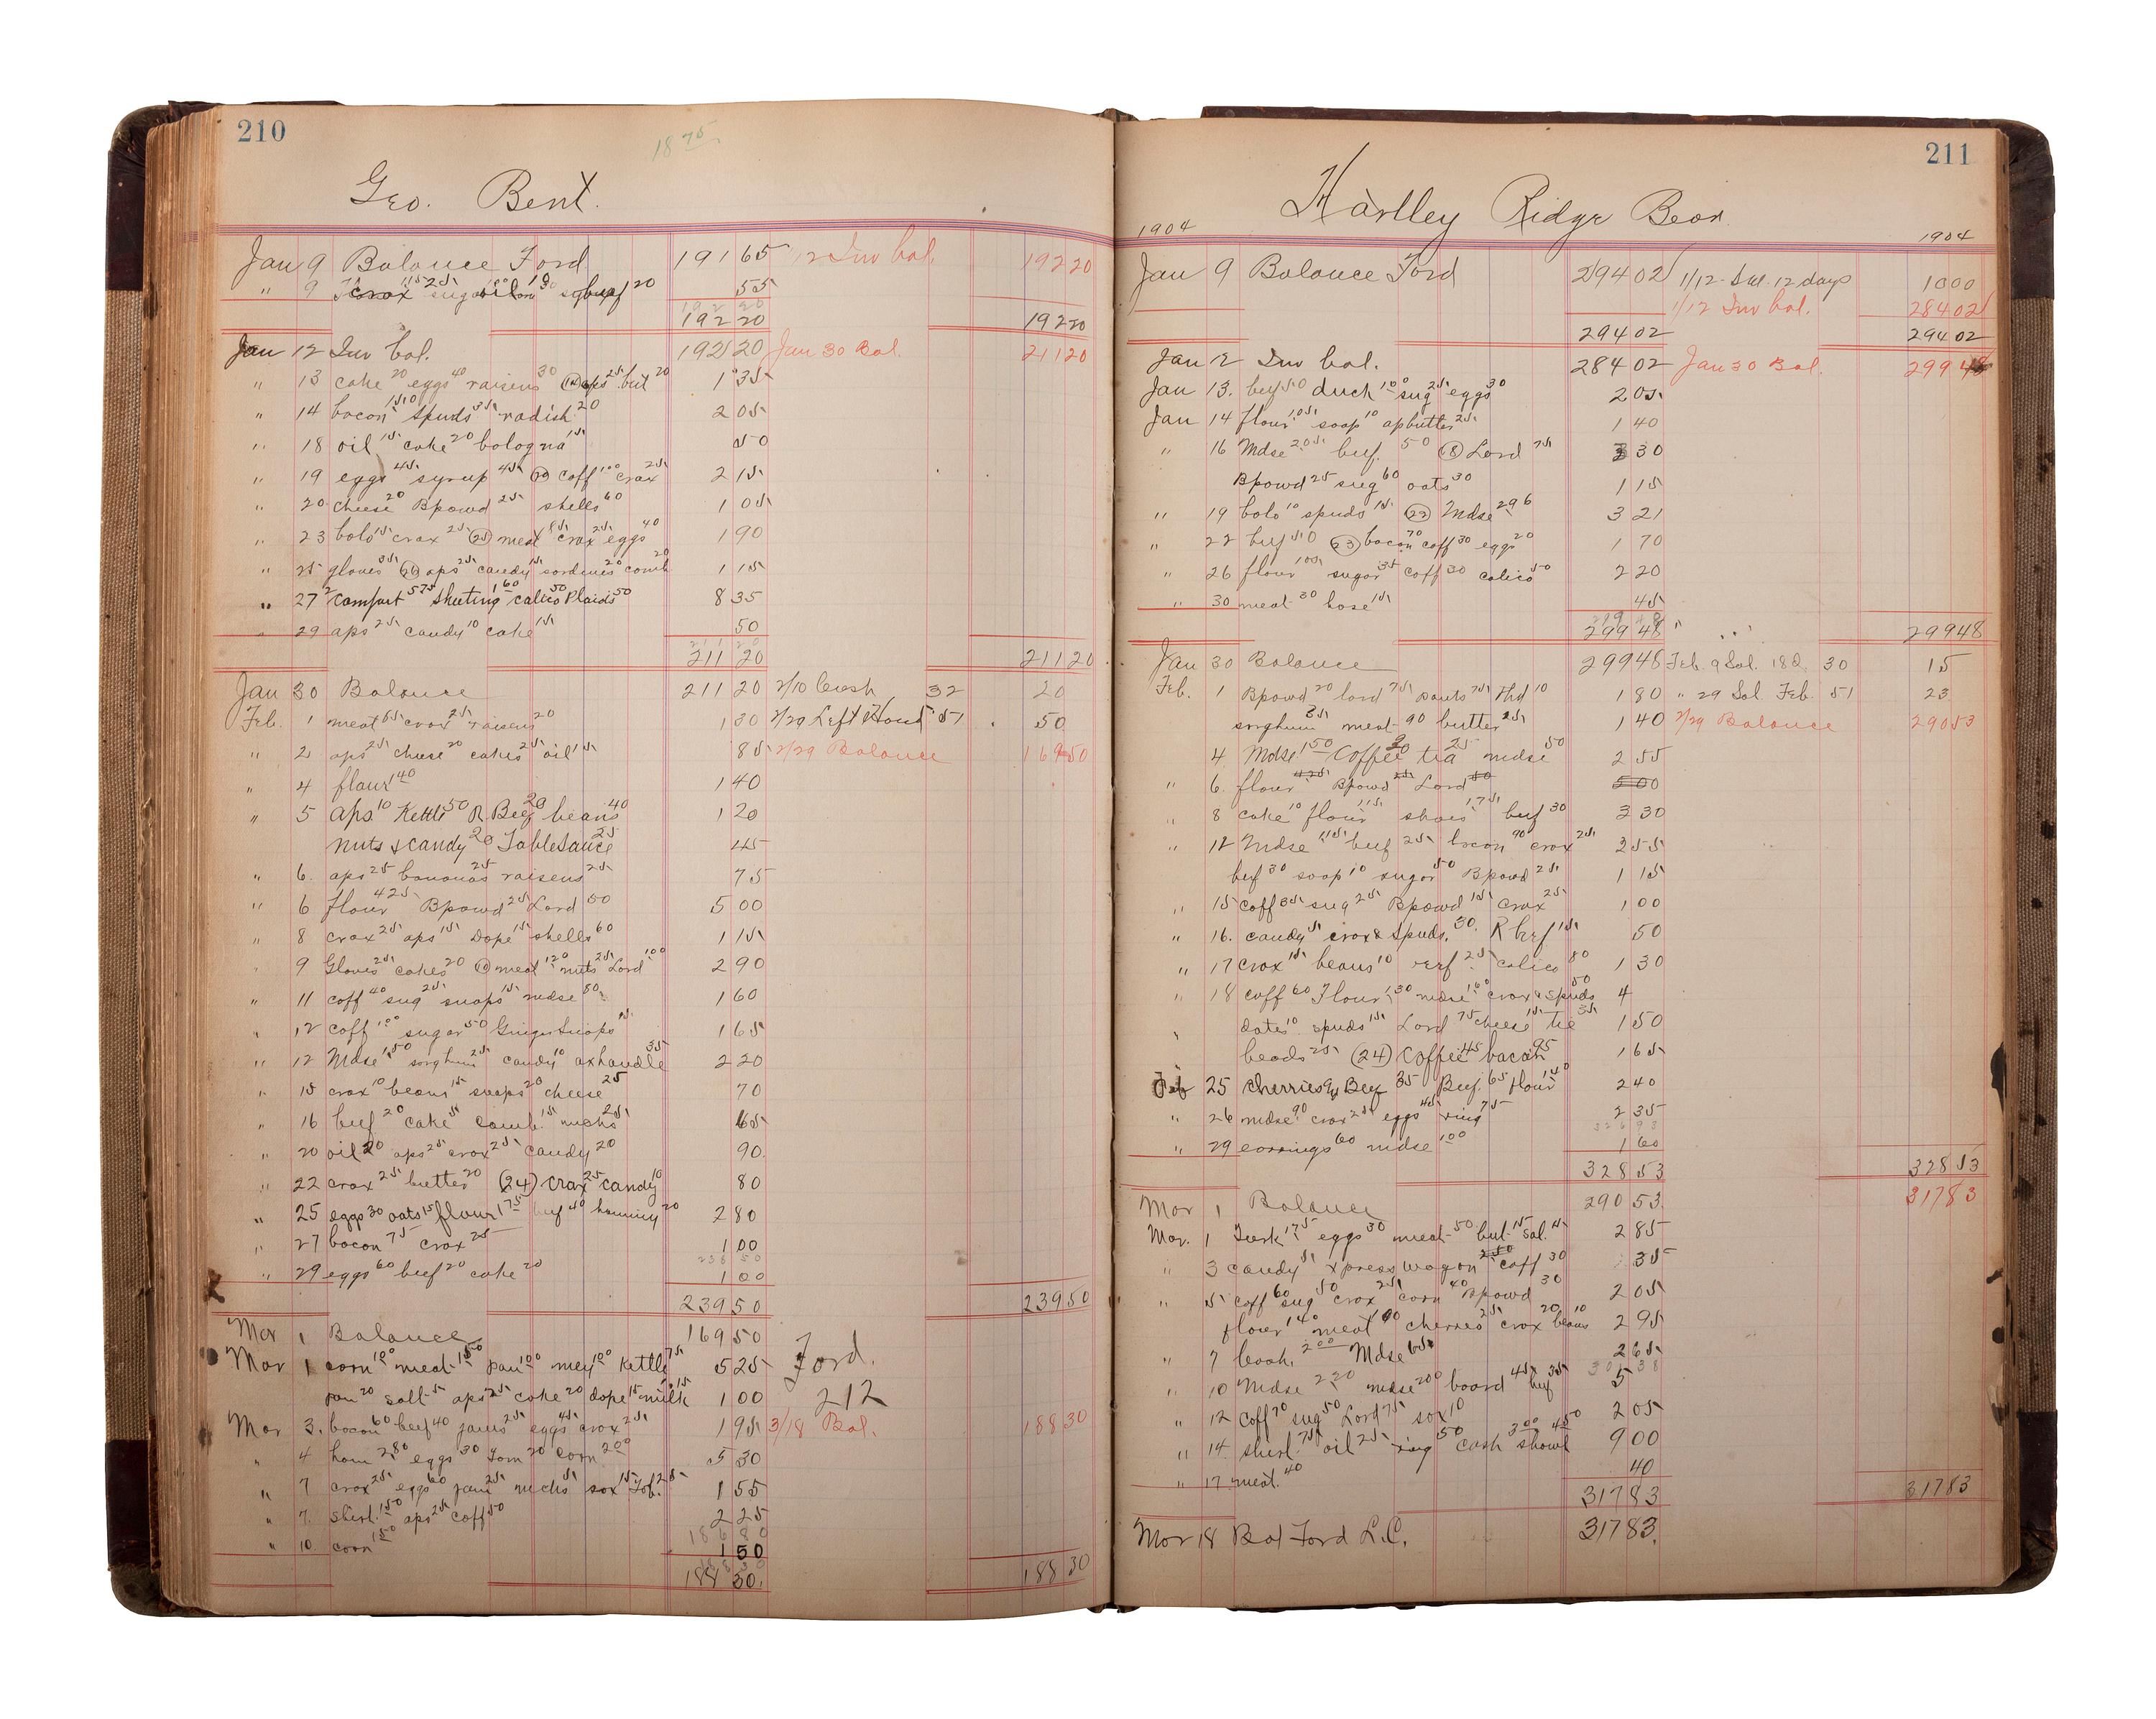 210
18 75
Geo. Bent.
Jan 9 Balance Ford 191 65 12 Inv bal. 192 20
" 9 crax sug oil 20 55
192 20 192 20
Jan 12 Inv bal. 192 20 Jan 30 Bal. 211 20
" 13 cake 20 eggs 40 raisens 30 aps 25 but 20 1 35
" 14 bacon 150 spuds 35 radish 20 2 05
" 18 oil 15 cake 20 bologna 15 50
" 19 eggs 45 syrup 45 coff 100 crax 25 2 15
" 20 cheese 20 Bpowd 25 shells 60 1 05
" 23 bolo 15 crax 25 (25) meat 85 crax 25 eggs 40 1 90
" 25 gloves 35 (26) aps 25 candy 15 sardines 20 comb 20 1 15
" 27 2 Comfort 575 Sheeting 1 60 calico 50 Plaids 50 8 35
" 29 aps 25 candy 10 cake 15 50
211 20 211 20
Jan 30 Balance 211 20 2/10 Cash 32 20
Feb. 1 meat 85 crax 25 raisens 20 1 30 2/29 Left Hand 51 50
" 2 aps 25 cheese 20 cakes 25 oil 15 85 2/29 Balance 169 50
" 4 flour 1 40 1 40
" 5 Aps 10 Kettle 50 R Beef 20 beans 40 1 20
Nuts & candy 20 Table Sauce 25 45
" 6. aps 25 bananas 25 raisens 25 75
" 6 flour 425 Bpowd 25 Lard 50 5 00
" 8 crax 25 aps 15 Dope 15 shells 60 1 15
9 Gloves 25 cakes 20 meat 120 nuts 25 Lard 100 2 90
" 11 coff 40 sug 25 snaps 15 mdse 80 1 60
" 12 coff 100 sugar 50 Ginger Snaps 15 1 65
" 12 Mdse 1 50 sorghum 25 candy 10 axhandle 35 2 20
" 15 crax 10 beans 15 snaps 20 cheese 25 70
" 16 beef 20 cake 5 comb 15 25 65
" 20 oil 20 aps 25 crax 25 candy 20 90
" 22 crax 25 butter 20 (24) crax 25 candy 10 80
" 25 eggs 30 oats 15 flour 1 75 beef 40 hominy 20 2 80
" 27 bacon 75 crax 25 1 00
" 29 eggs 60 beef 20 cake 20 1 00
239 50 239 50
Mar 1 Balance 169 50 Ford.
Mar 1 corn 100 meat 1 50 pan 100 100 Kettle 75 5 25
pan 20 salt 5 aps 25 cake 20 dope 15 milk 15 1 00 212
Mar 3. bacon 60 beef 40 jams 25 eggs 45 crax 25 1 95 3/18 Bal. 188 30
" 4 ham 280 eggs 30 20 corn 200 5 30
" 7 crax 25 eggs 60 jam 25 5 sox 15 Tob. 25 1 55
" 7. shirt 1 50 aps 25 coff 50 2 25
186 80
" 10 corn 1 50 1 50
188 30. 188 30
211
Hartley Ridge Bear
1904 1904
Jan 9 Balance Ford 294 02 1/12 Sal. 12 days 10 00
1/12 Inv bal. 284 02
294 02 294 02
Jan 12 Inv bal. 284 02 Jan 30 Bal. 299 48
Jan 13. beef 50 duck 100 sug 25 eggs 30 2 05
Jan 14 flour 105 soap 10 apbutter 25 1 40
" 16 Mdse 205 beef. 50 (18) Lard 75 3 30
Bpowd 25 sug 60 oats 30 1 15
" 19 bolo 10 spuds 15 (22) Mdse 296 3 21
" 22 beef 50 (23) bacon 70 coff 30 eggs 20 1 70
" 26 flour 105 sugar 35 coff 30 calico 50 2 20
" 30 meat 30 hose 15 45
299 48 299 48
Jan 30 Balance 299 48 Feb. 9 Sal. 18d. 30 15
Feb. 1 Bpowd 20 lard 75 pants 75 Thd 10 1 80 " 29 Sal Feb 51 23
sorghum 25 meat 90 butter 25 1 40 2/29 Balance 290 53
4. Mdse 1 50 Coffee 30 tea 25 mdse 50 2 55
" 6. flour 425 Bpowd 25 Lard 50 5 00
" 8 cake 10 flour 115 shoes 175 beef 30 3 30
" 12 Mdse 115 beef 25 bacon 90 crax 25 2 55
beef 30 soap 10 sugar 50 Bpowd 25 1 15
" 15 coff 35 sug 25 Bpowd 15 crax 25 1 00
" 16. candy 5 crax & Spuds. 30 R beef 15 50
" 17 crax 15 beans 10 beef 25 calico 80 1 30
" 18 coff 60 Flour 1 30 mdse 160 crax & spuds 50 4
dates 10 spuds 15 Lard 75 cheese 15 tie 35 1 50
beads 25 (24) Coffee 45 bacon 95 1 65
Feb 25 cherries Beef 35 Beef 65 flour 2 40
" 26 mdse 90 crax 25 eggs 45 ring 75 2 35
" 29 earrings 60 mdse 100 1 60
328 53 328 53
Mar 1 Balance 290 53 317 83
Mar. 1 Turk 175 eggs 30 meat 50 but 15 Sal. 15 2 85
" 3 candy 5 xpress wagon 2 50 coff 30 35
" 5 coff 60 sug 50 crax 25 corn 40 Bpowd 30 2 05
flour 1 40 meat 90 cherries 25 crax 20 beans 10 2 95
" 7 book 2 00 Mdse 65 2 65
" 10 Mdse 2 20 mdse 200 board 45 beef 35 5
" 12 coff 70 sug 50 Lard 75 sox 10 2 05
" 14. shirt 75 oil 25 ring 50 cash 3 00 shawl 4 50 9 00
" 17 meat. 40 40
317 83 317 83
Mar 18 Bal Ford L.C. 317 83.